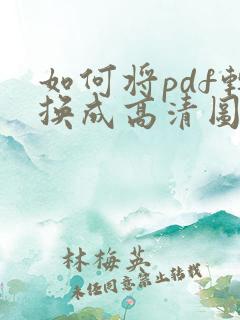 如何将pdf转
换成高清图
林梅英
未经同意禁止转载